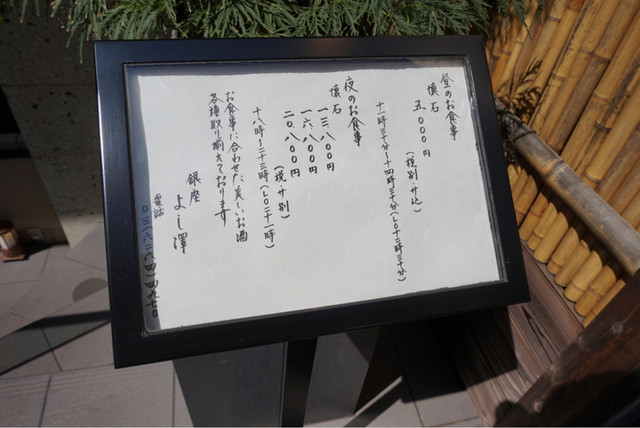 昼のお食事
懐石
五、〇〇〇円
(税別・サ込)
十一時三十分〜十四時三十分(L〇十三時三十分)
夜のお食事
懐石
一三、八〇〇円
一六、八〇〇円
二〇、八〇〇円
(税・サ別)
十八時〜二十三時(L〇二十一時)
お食事に合わせた美しいお酒
各種取り揃えております
銀座
よし澤
電話